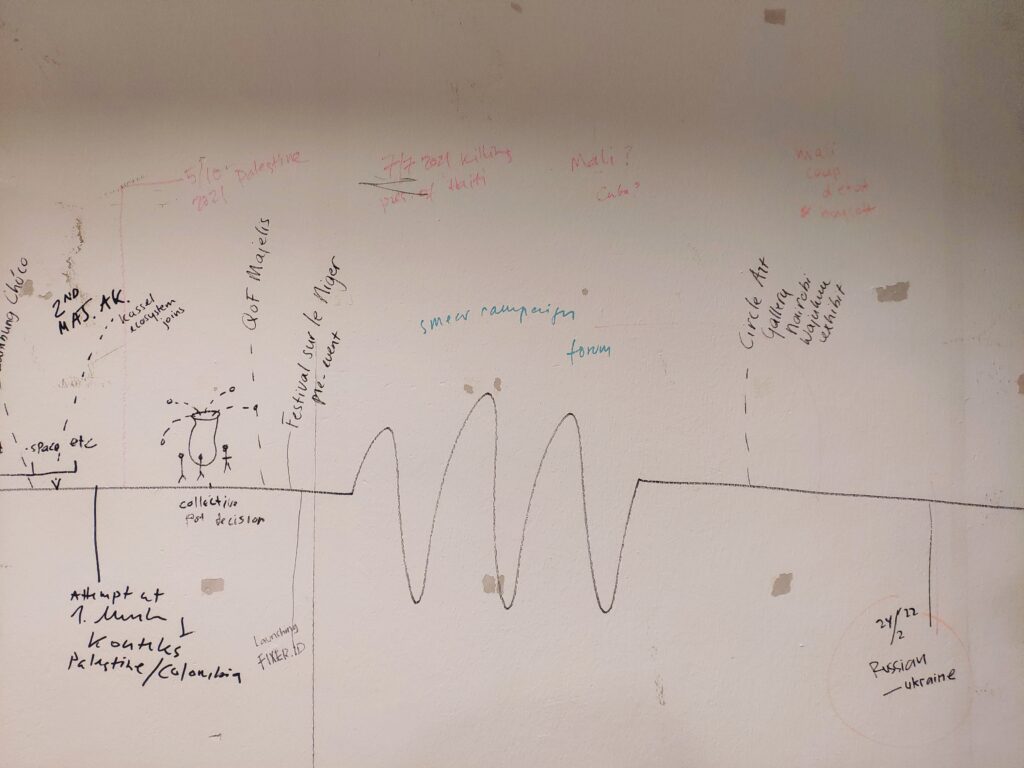 5/10 Palestine
2021
7/7 2021 Killing
pres of Haiti
Mali?
Cuba?
Mali
coup
d'etat
&
Chóco
2ND
MAJ. AK.
Kassel
ecosystem
joins
QOF Majelis
Festival sur le Niger
pre-event
smear campaign
forum
Circle Art
Gallery
Nairobi
Wajukuu
exhibit
space etc
collective
Pot decision
Attempt at
1.
Konteks
Palestine/Colombia
Launching
FIXER.ID
24/2 22
Russian
—ukraine